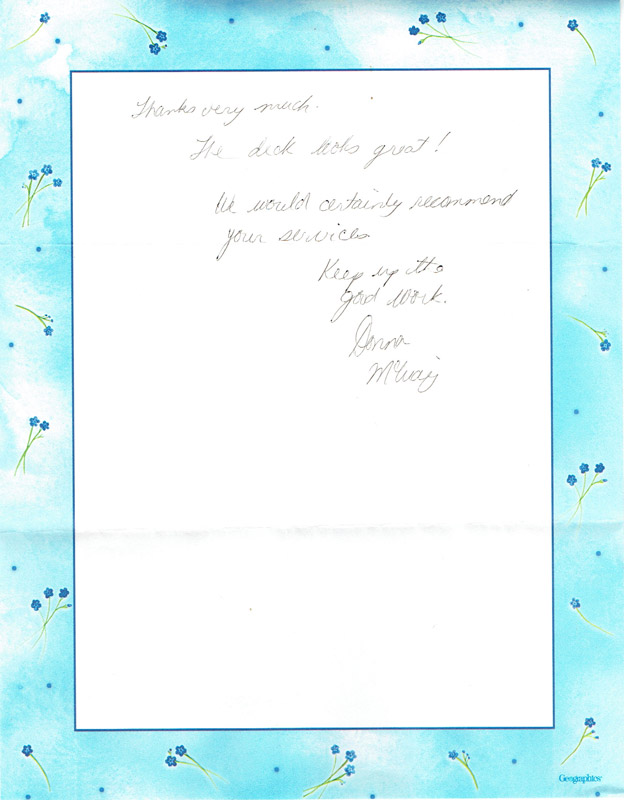 Thanks very much.
The deck looks great!
We would certainly recommend
your services
Keep up the
good work.
Donna
Geographics